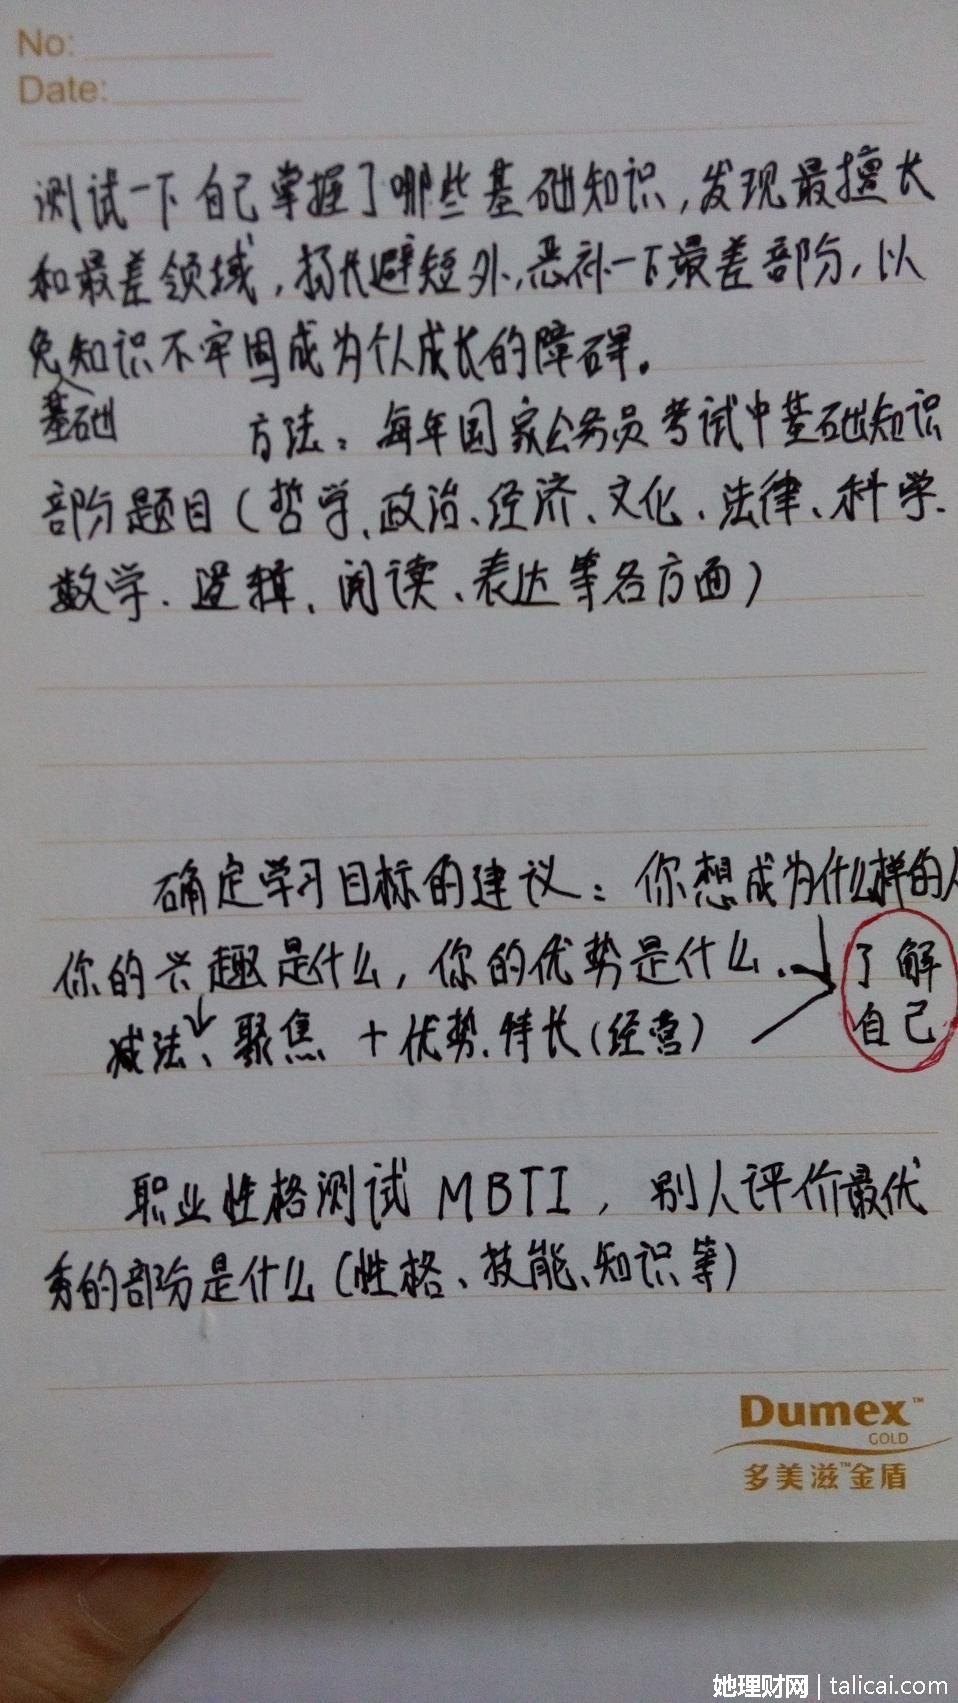 No:
Date:
测试一下自己掌握了哪些基础知识,发现最擅长
和最差领域,扬长避短外,恶补一下最差部分,以
免知识不牢固成为个人成长的障碍。
基础
方法:每年国家公务员考试中基础知识
部分题目(哲学、政治、经济、文化、法律、科学、
数学、逻辑、阅读、表达等各方面)
确定学习目标的建议:你想成为什么样的人
你的兴趣是什么,你的优势是什么.
了解
自己
减法、聚焦 + 优势、特长(经营)
职业性格测试 MBTI, 别人评价最优
秀的部分是什么(性格、技能、知识等)
Dumex™
GOLD
多美滋™金盾
她理财网|talicai.com